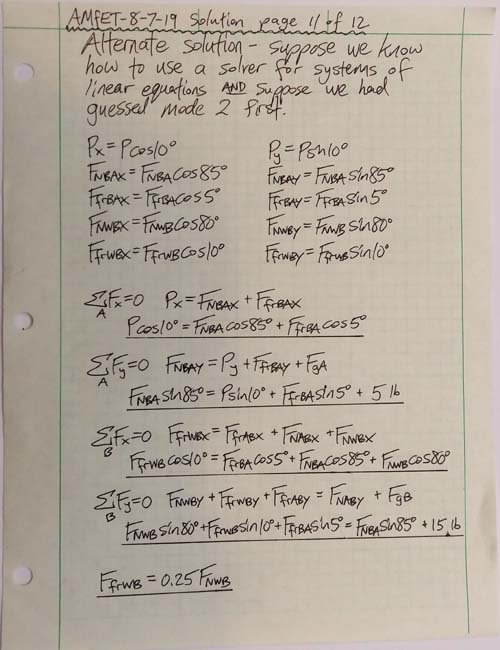 AMfET-8-7-19 Solution page 11 of 12
Alternate solution - suppose we know
how to use a solver for systems of
linear equations AND suppose we had
guessed mode 2 first.
Px = Pcos10° Py = Psin10°
FNBAX = FNBAcos85° FNBAY = FNBAsin85°
FfrBAX = FfrBAcos5° FfrBAY = FfrBAsin5°
FNWBX = FNWBcos80° FNWBY = FNWBsin80°
FfrWBX = FfrWBcos10° FfrWBY = FfrWBsin10°
∑Fx=0 Px = FNBAX + FfrBAX
A
Pcos10° = FNBAcos85° + FfrBAcos5°
∑Fy=0 FNBAY = Py + FfrBAY + FgA
A
FNBAsin85° = Psin10° + FfrBAsin5° + 5 lb
∑Fx=0 FfrWBX = FfrABX + FNABX + FNWBX
B
FfrWBcos10° = FfrBAcos5° + FNBAcos85° + FNWBcos80°
∑Fy=0 FNWBY + FfrWBY + FfrABY = FNABY + FgB
B
FNWBsin80° + FfrWBsin10° + FfrBAsin5° = FNBAsin85° + 15 lb
FfrWB = 0.25 FNWB